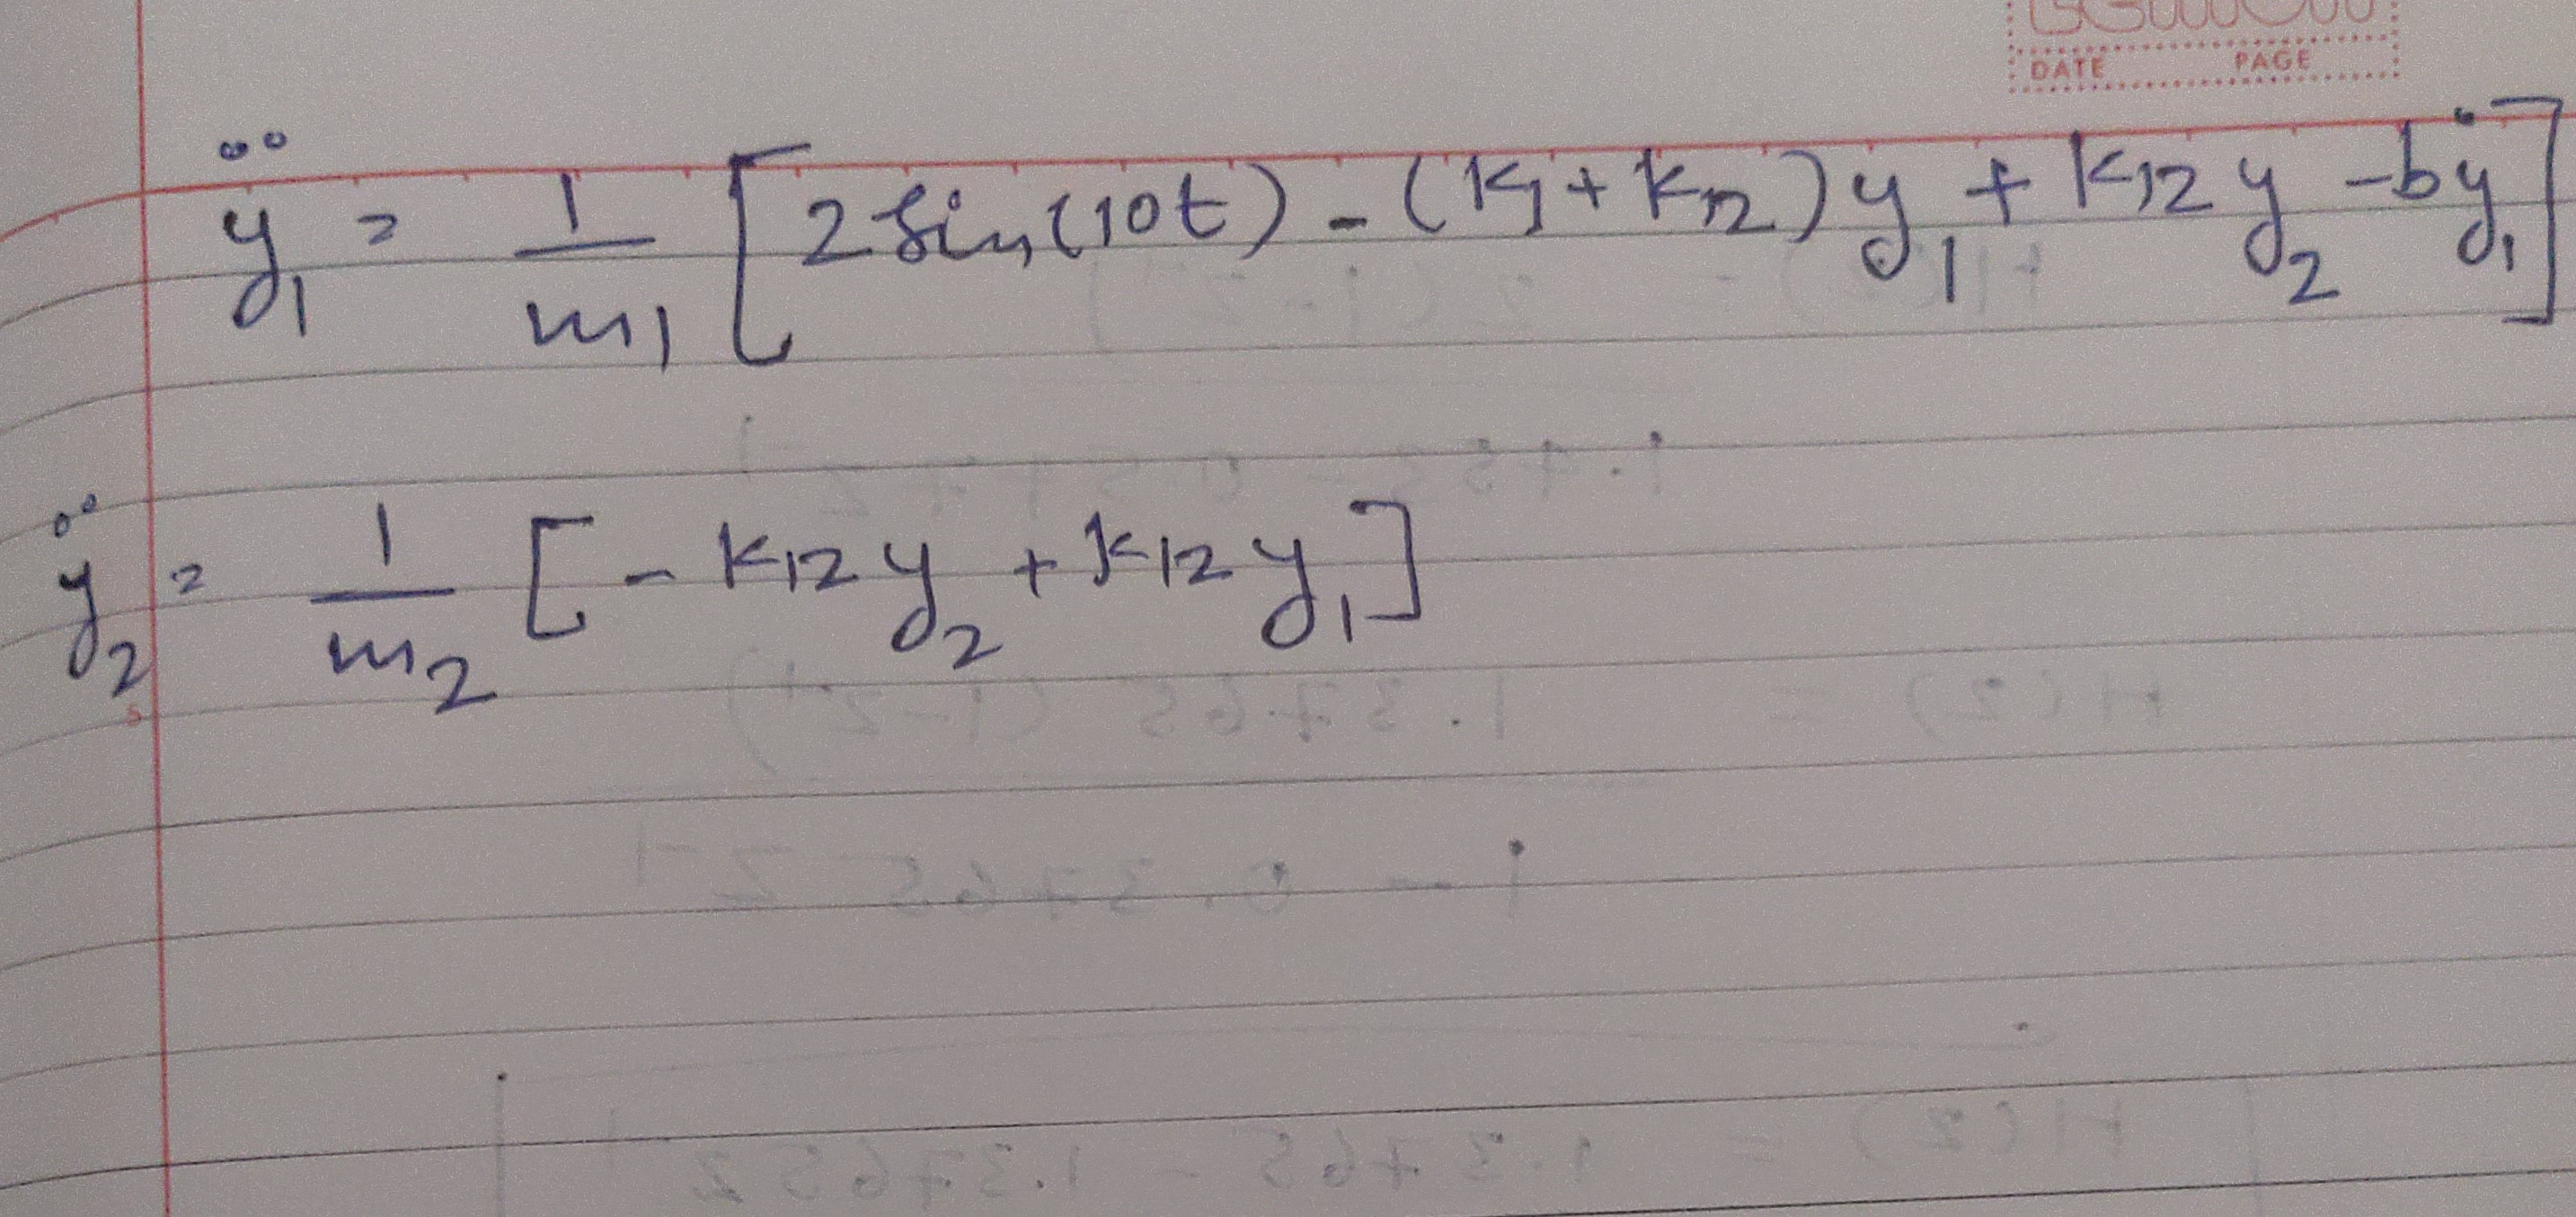 DATE PAGE
ÿ₁ = 1/m₁ [2 sin(10t) - (k₁ + k₁₂) y₁ + k₁₂ y₂ - bẏ₁]
ÿ₂ = 1/m₂ [- k₁₂ y₂ + k₁₂ y₁]